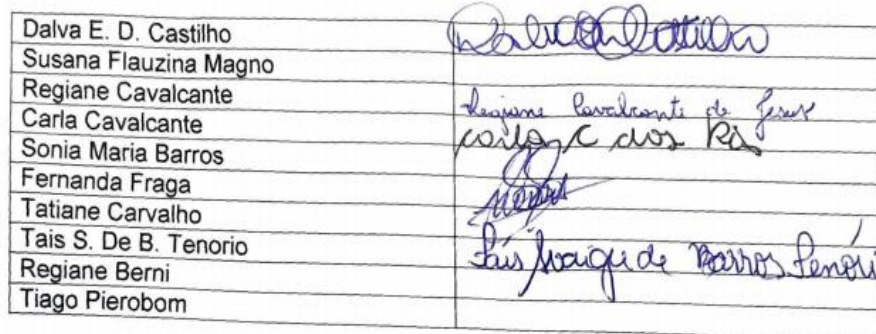 Dalva E. D. Castilho
Susana Flauzina Magno
Regiane Cavalcante Regiane Cavalcante de Jesus
Carla Cavalcante Carla C dos Reis
Sonia Maria Barros
Fernanda Fraga
Tatiane Carvalho
Tais S. De B. Tenorio Tais de Barros Tenóri
Regiane Berni
Tiago Pierobom